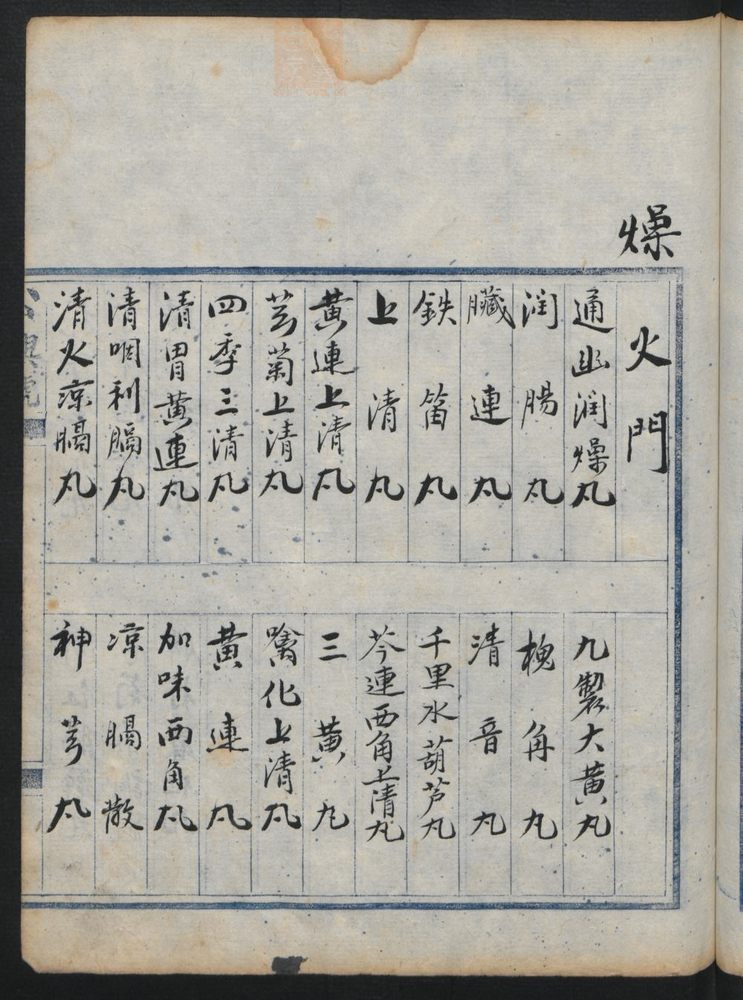 燥
火門
通幽潤燥丸
潤腸丸
臟連丸
鉄笛丸
上清丸
黃連上清丸
芎菊上清丸
四季三清丸
清胃黃連丸
清咽利膈丸
清火凉膈丸
九製大黃丸
槐角丸
清音丸
千里水葫芦丸
芩連西角上清丸
三黃丸
噙化上清丸
黃連丸
加味西角丸
凉膈散
神芎丸